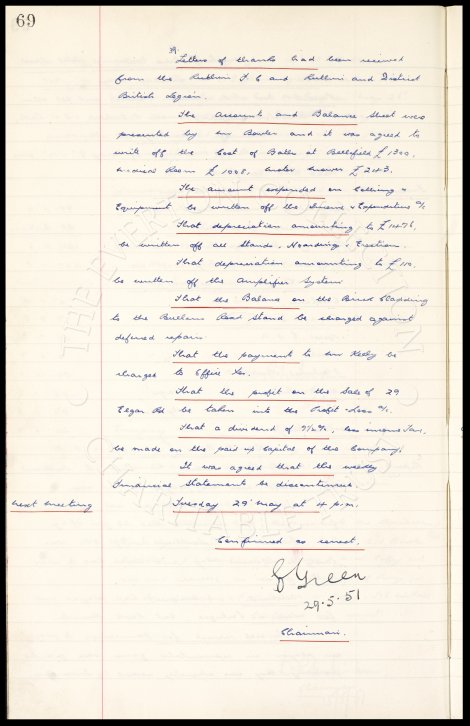 69
39.
Letters of thanks had been received
from the Ruthin F.C and Ruthin and District
British Legion.
The Account and Balance Sheet were
presented by Mr Bowler and it was agreed to
write off the Cost of Baths at Bellefield £1300,
Room £1008, Motor Mower £243.
The amount expended on Clothing &
Equipment be written off the Income & Expenditure a/c
That depreciation amounting to £1476,
be written off all Stands, Hoardings & Erection.
That depreciation amounting to £110,
be written off the Amplifier System
That the Balance on the Cladding
to the Bullens Road Stand be charged against
deferred repairs
That the payment to Mr Kelly be
charged to Office Exs.
That the profit on the Sale of 29
Elgar Rd be taken into the Profit & Loss a/c.
That a dividend of 7½%, less income Tax,
be made on the paid up Capital of the Company.
It was agreed that the weekly
Financial Statement be discontinued.
next meeting Tuesday 29 May at 4 p.m.
Confirmed as correct.
Green
29.5.51
Chairman.
THE EVERTON COLLECTION
CHARITABLE TRUST